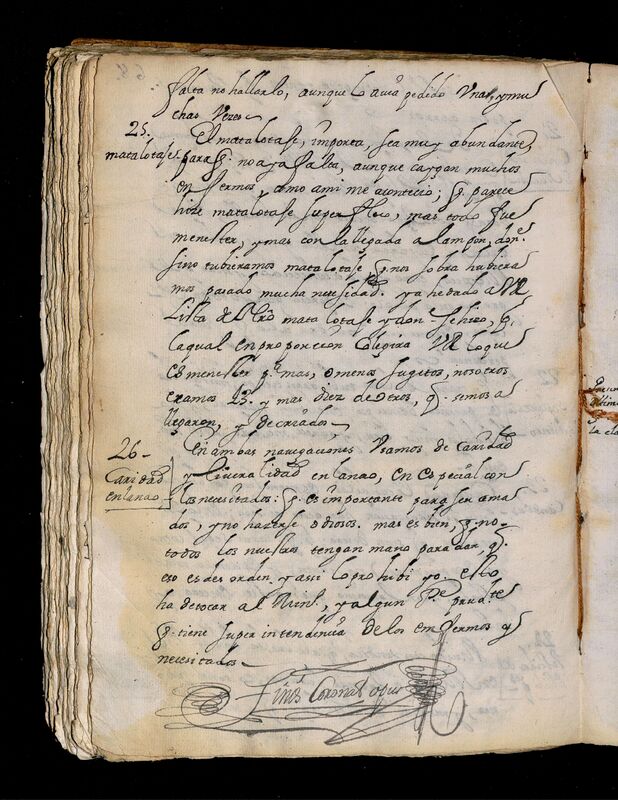 falta no hallarlo, aunque lo avia pedido Unas, y mu
chas Vezes.
25.
matalotaje.
El matalotaje, importa, sea muy abundante,
para q̃ no aya falta, aunque caygan muchos
enfermos, como a mi me acontecio; q̃ parece
hize matalotaje superfluo, mas todo fue
menester, y mas con la llegada a lampon, donᵉ
sino tubieramos matalotaje q̃ nos sobra hubiera
mos pasado mucha necesidad. ya he dado a VR
Lista del mata lotaje y don se hizo, q̃.
la qual en proporcion Colegira VR lo que
es menester pᵃ mas, o menos sugetos, nosotros
eramos 23. y mas diez de otros, q̃. se nos a
llegaron, y de criados.
26-
Caridad
en la nao
En ambas navegaciones Usamos de Caridad
y Liveralidad en la nao, en especial con
los necesitados: q̃ es importante para ser ama
dos, y no hazerse odiosos. mas es bien, q̃ no-
todos los nuestros tengan mano para dar, q̃.
eso es des orden, y assi lo prohibi yo. esto
ha de tocar al y algun Pᵉ prudᵗᵉ
q̃ tiene super intendencia de los enfermos y
necesitados-
Coronel